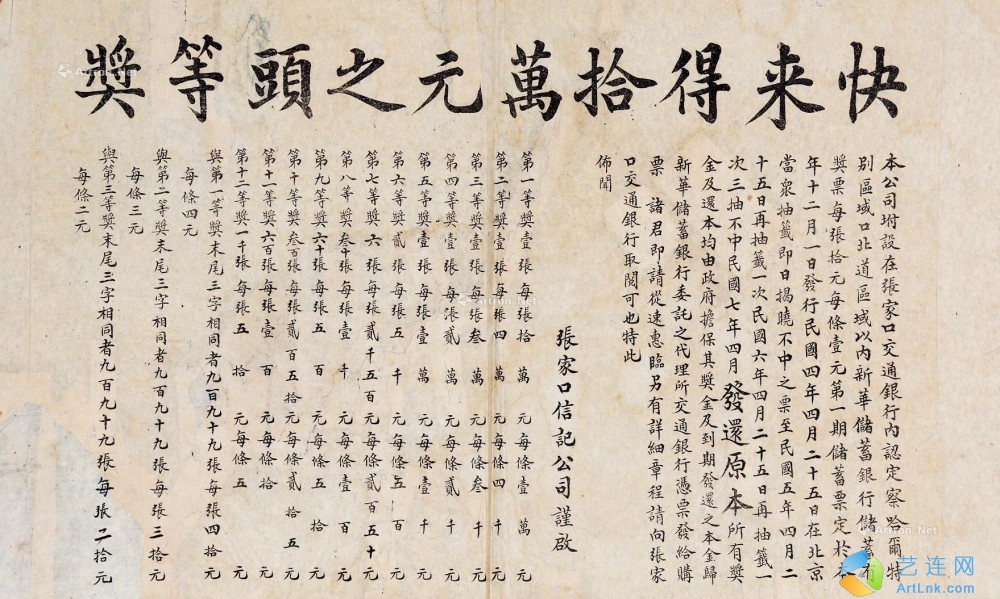 快来得拾萬元之頭等獎
本公司坿設在張家口交通銀行內認定察哈爾特
別區域口北道區域以內新華儲蓄銀行儲蓄有
獎票每張拾元每條壹元第一期儲蓄票定於本
年十二月一日發行民國四年四月二十五日在北京
當眾抽籤即日揭曉不中之票至民國五年四月二
十五日再抽籤一次民國六年四月二十五日再抽籤一
次三抽不中民國七年四月發還原本所有獎
金及還本均由政府擔保其獎金及到期發還之本金歸
新華儲蓄銀行委託之代理所交通銀行憑票發給購
票 諸君即請從速惠臨另有詳細章程請向張家
口交通銀行取閱可也特此
佈聞
張家口信記公司謹啟
第一等獎壹張每張拾萬元每條壹萬元
第二等獎壹張每張四萬元每條四千元
第三等獎壹張每張叁萬元每條叁千元
第四等獎壹張每張貳萬元每條貳千元
第五等獎壹張每張壹萬元每條壹千元
第六等獎貳張每張五千元每條五百元
第七等獎六張每張貳千五百元每條貳百五十元
第八等獎叁十張每張壹千元每條壹百元
第九等獎六十張每張五百元每條五拾元
第十等獎叁百張每張貳百五拾元每條貳拾五元
第十一等獎六百張每張壹百元每條拾元
第十二等獎一千張每張五拾元每條五元
與第一等獎末尾三字相同者九百九十九張每張四拾元
每條四元
與第二等獎末尾三字相同者九百九十九張每張三拾元
每條三元
與第三等獎末尾三字相同者九百九十九張每張二拾元
每條二元
艺连网
ArtLink.com